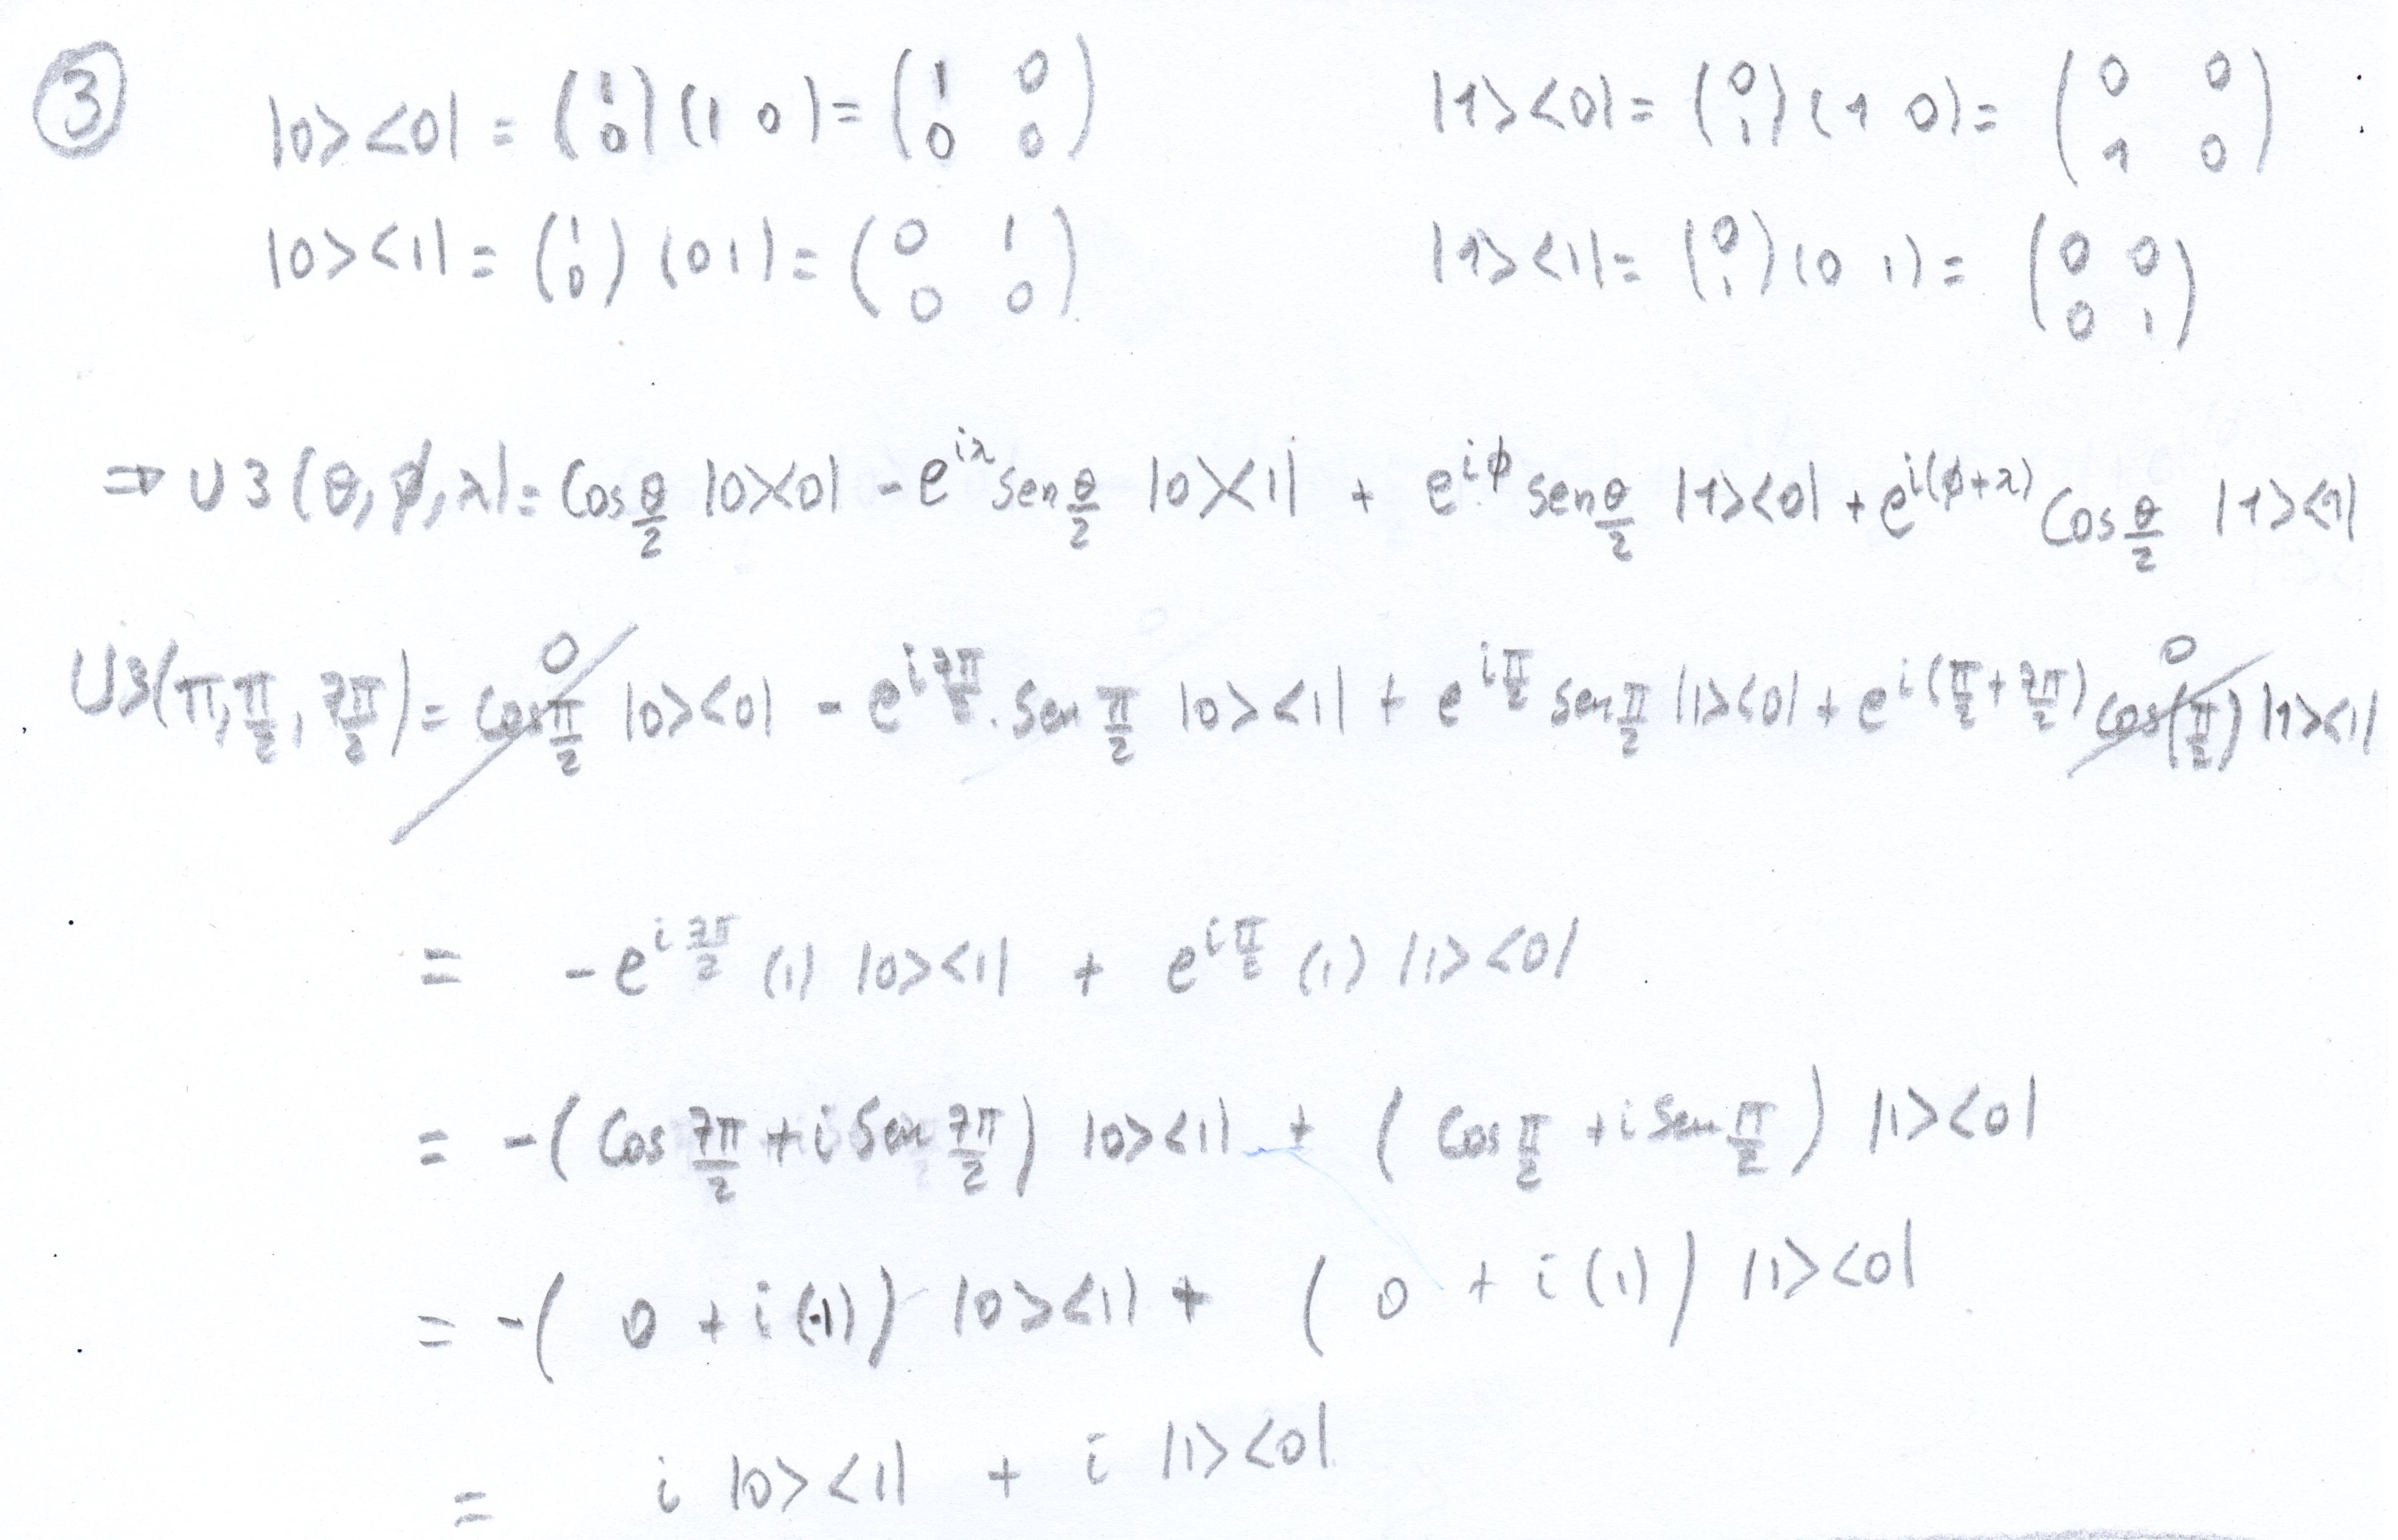 ③ |0><0| = (1 0) (1 0) = (1 0 0 0) |1><0| = (0 1) (1 0) = (0 0 1 0)
|0><1| = (1 0) (0 1) = (0 1 0 0) |1><1| = (0 1) (0 1) = (0 0 0 1)
⇒ U3(θ,ϕ,λ) = Cos θ/2 |0><0| - e^{iλ} sen θ/2 |0><1| + e^{iϕ} sen θ/2 |1><0| + e^{i(ϕ+λ)} Cos θ/2 |1><1|
U3(π, π/2, 7π/2) = cos π/2 0 |0><0| - e^{i 7π/2} . sen π/2 |0><1| + e^{i π/2} sen π/2 |1><0| + e^{i(π/2 + 7π/2)} cos(π/2) 0 |1><1|
= -e^{i 7π/2} (1) |0><1| + e^{i π/2} (1) |1><0|
= -( Cos 7π/2 + i Sen 7π/2 ) |0><1| + ( Cos π/2 + i Sen π/2 ) |1><0|
= -( 0 + i (-1) ) |0><1| + ( 0 + i (1) ) |1><0|
= i |0><1| + i |1><0|